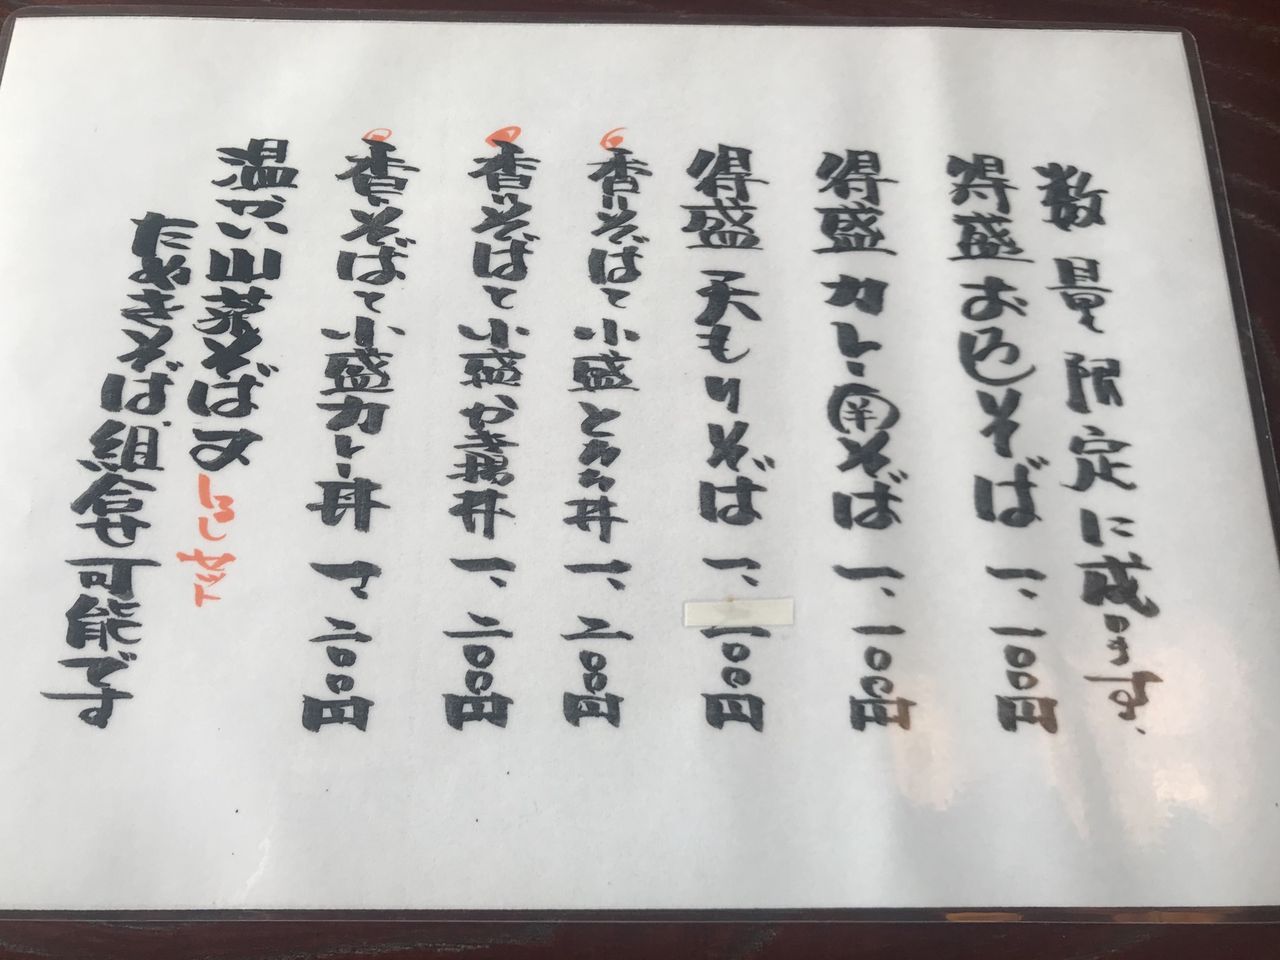 数量限定に成ります。
得盛おろしそば 一、一〇〇円
得盛カレー南そば 一、一〇〇円
得盛天もりそば 一、二〇〇円
香りそばと小盛とろろ丼 一、二〇〇円
香りそばと小盛かき揚丼 一、二〇〇円
香りそばと小盛カレー丼 一、二〇〇円
温かい山菜そば又
たぬきそば組合せ可能です